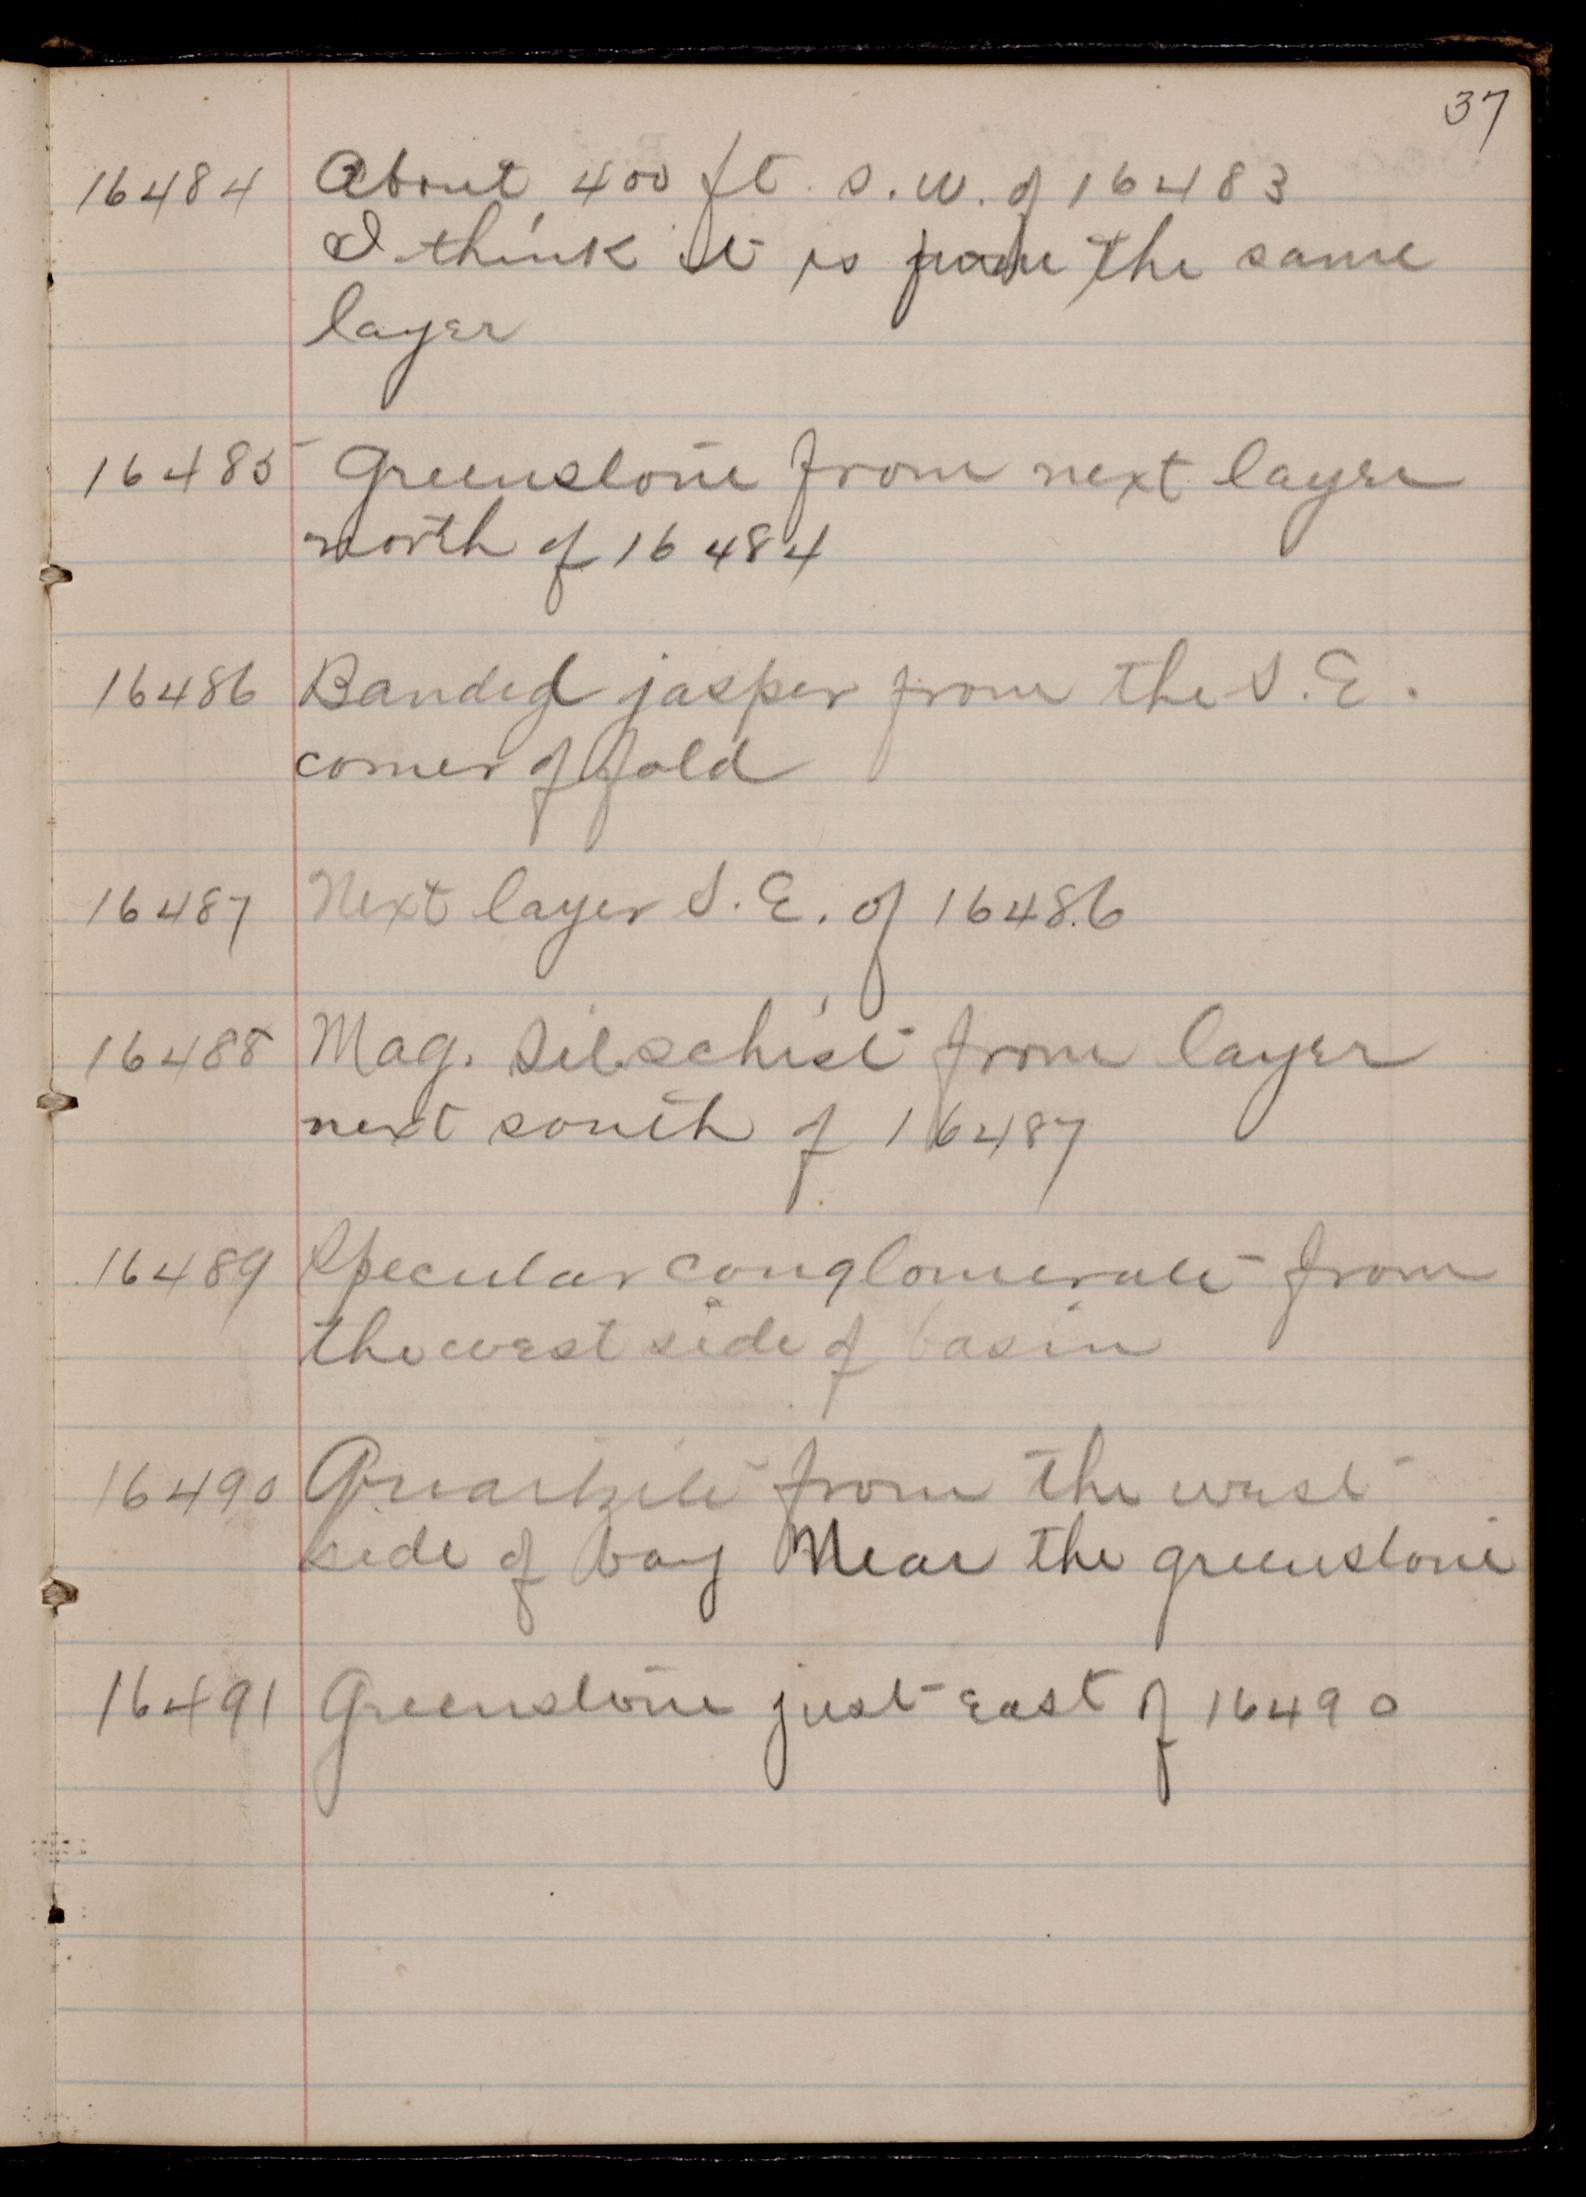 37
16484 About 400 ft. S.W. of 16483
I think it is from the same
layer
16485 Greenstone from next layer
north of 16484
16486 Banded jasper from the S.E.
corner of fold
16487 Next layer S.E. of 16486
16488 Mag. Sil. schist from layer
next south of 16487
16489 Specular conglomerate from
the west side of basin
16490 Quartzite from the west
side of bay Near the greenstone
16491 Greenstone just east of 16490